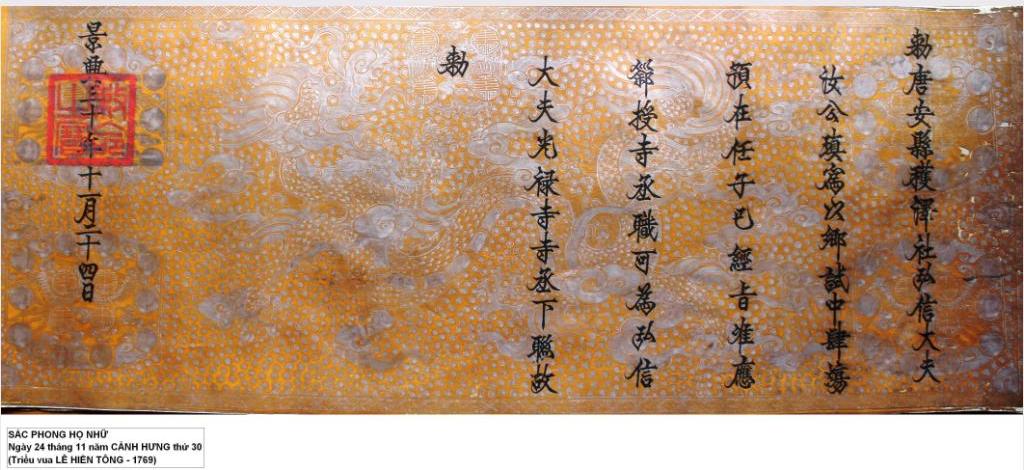 勑唐安縣穫澤社弘信大夫
汝公瑱爲以鄉試中肆塲
預在任子已經旨准應
授寺丞職可為弘信
大夫光禄寺寺丞下聫故
勑
景興三十年十一月二十四日
SẮC PHONG HỌ NHỮ
Ngày 24 tháng 11 năm CẢNH HƯNG thứ 30
(Triều vua LÊ HIỂN TÔNG - 1769)